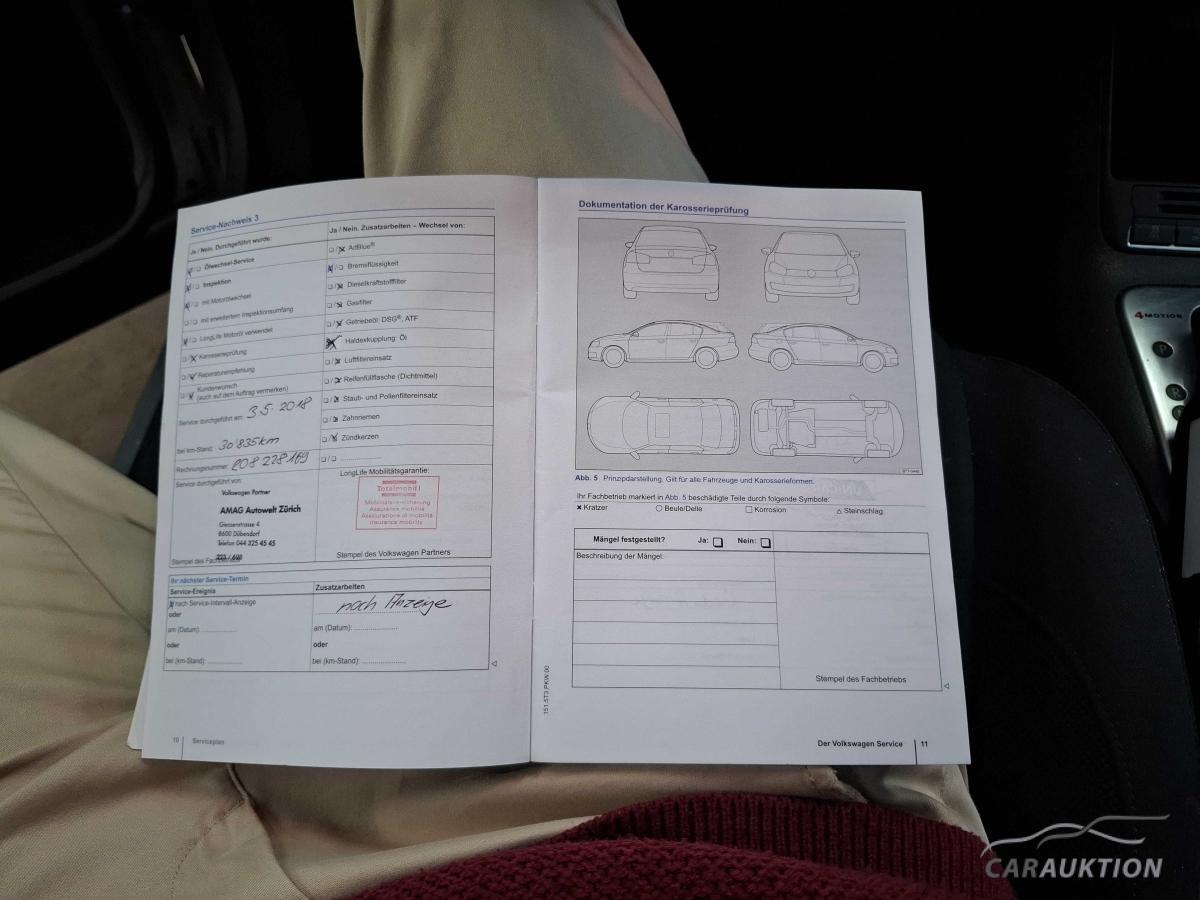 Service-Nachweis 3
Ja / Nein. Durchgeführt wurde:
☒/☐ Ölwechsel-Service
☒/☐ Inspektion
☒/☐ mit Motorölwechsel
☐/☐ mit erweitertem Inspektionsumfang
☒/☐ LongLife Motoröl verwendet
☐/☒ Karosserieprüfung
☐/☒ Reparaturempfehlung
☐/☒ Kundenwunsch
(auch auf dem Auftrag vermerken)
Service durchgeführt am: 3.5.2018
bei km-Stand: 30'835km
Rechnungsnummer: 208 228 169
Service durchgeführt von:
Volkswagen Partner
AMAG Autowelt Zürich
Giessenstrasse 4
8600 Dübendorf
Telefon 044 325 45 45
Stempel des
Ja / Nein. Zusatzarbeiten – Wechsel von:
☐/☒ AdBlue®
☒/☐ Bremsflüssigkeit
☐/☒ Dieselkraftstofffilter
☐/☒ Gasfilter
☐/☒ Getriebeöl: DSG®, ATF
Haldexkupplung: Öl
☐/☒ Luftfiltereinsatz
☐/☒ Reifenfüllflasche (Dichtmittel)
☐/☒ Staub- und Pollenfiltereinsatz
☐/☒ Zahnriemen
☐/☒ Zündkerzen
☐/☐ ....................
LongLife Mobilitätsgarantie:
Totalmobil!
Mobilitätsversicherung
Assurance mobilité
Assicurazione di mobilità
Insurance mobility
Stempel des Volkswagen Partners
Ihr nächster Service-Termin
Service-Ereignis
☒ nach Service-Intervall-Anzeige
oder
am (Datum): ....................
oder
bei (km-Stand): ....................
Zusatzarbeiten
nach Anzeige
am (Datum): ....................
oder
bei (km-Stand): ....................
10 Serviceplan
151.5T3.PKW.00
Dokumentation der Karosserieprüfung
Abb. 5 Prinzipdarstellung. Gilt für alle Fahrzeuge und Karosserieformen.
Ihr Fachbetrieb markiert in Abb. 5 beschädigte Teile durch folgende Symbole:
× Kratzer ○ Beule/Delle □ Korrosion △ Steinschlag
Mängel festgestellt? Ja: ☐ Nein: ☐
Beschreibung der Mängel:
Stempel des Fachbetriebs
Der Volkswagen Service 11
4MOTION
P
R
CARAUKTION